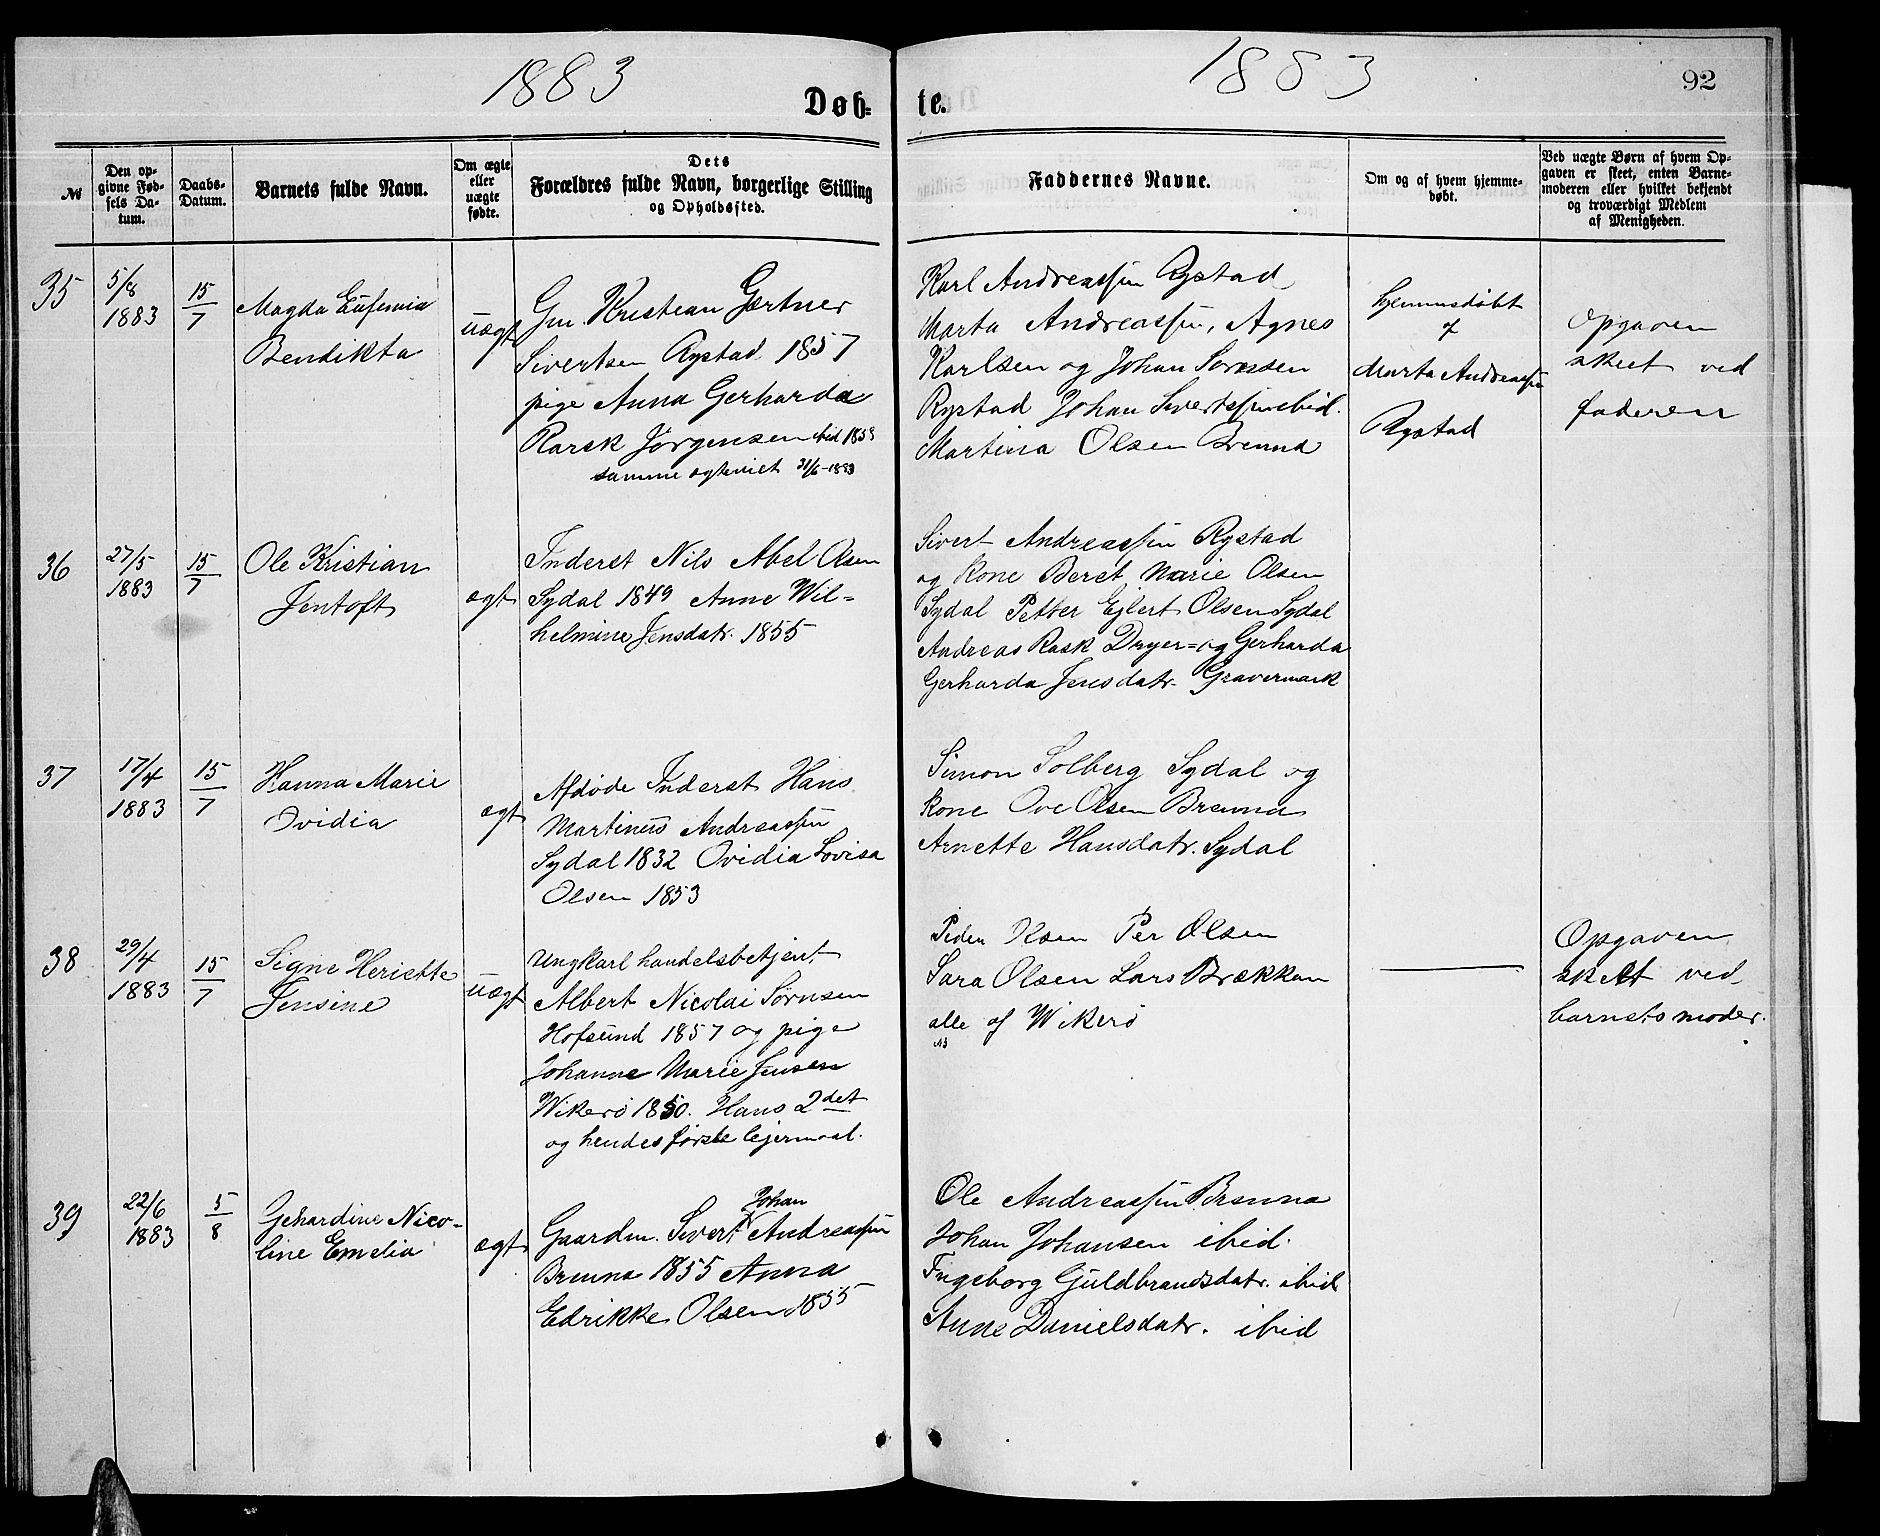 1883
1883
92
Døb-
te.
№
Den op-
givne Fød-
sels Da-
tum.
Daabs-
Datum.
Barnets fulde Navn.
Om ægte
eller
uægte
fødte.
Dets
Forældres fulde Navn, borgerlige Stilling
og Opholdssted.
Faddernes Navne.
Om og af hvem hjemme-
døbt.
Ved uægte Børn af hvem Op-
gaven er skeet, enten Barne-
moderen eller hvilket bekjendt
og troværdigt Medlem
af Menigheden.
35
5/8
1883
15
7
Magda Eufemia
Bendikta
uægt
Gm. Kristian Gertner
Sivertsen Rystad 1857
pige Anna Gerharda
Rarsk Jørgensen ibid
samme ægteviet 31/6-1883
Karl Andreassen Rystad
Marta Andreassen, Agnes
Karlsen og Johan Sørensen
Rystad Johan Sivertssen ibid.
Martina Olsen Brenna
hjemmedøbt
af
Marta Andreassen
Rystad
Opgaven
skeet ved
faderen
36
27/5
1883
15
7
Ole Kristian
Jentoft
ægt
Inderst Nils Abel Olsen
Sydal 1849 Anne Wil=
helmine Jensdatr. 1855
Sivert Andreassen Rystad
og kone Beret Marie Olsen
Sydal Petter Ejlert Olsen Sydal
Andreas Rask Dryer= og Gerharda
Gerharda Jensdatr. Gravermark
37
17/4
1883
15
7
Hanna Marie
Ovidia
ægt
Afdøde Inderst Hans
Martinus Andreassen
Sydal 1832 Ovidia Lovisa
Olsen 1853
Simon Solberg Sydal og
kone Ove Olsen Brenna
Arnette Hansdatr. Sydal
38
29/4
1883
15
7
Signe Heriette
Jensine
uægt
Ungkarl handelsbetjent
Albert Nicolai Sørnsen
Hofsund 1857 og pige
Johanne Marie Jensen
Wikerø 1850. Hans 2det
og hendes første lejermaal.
Peder Olsen Per Olsen
Sara Olsen Lars Brækkan
alle af Wikerø
Opgaven
skeet ved
barnets moder.
39
22/6
1883
5
8
Gehardine Nico-
line Emelia
ægt
Johan
Gaardm. Sivert Andreassen
Brenna 1855 Anna
Edrikke Olsen 1855
Ole Andreassen Brenna
Johan Johansen ibid.
Ingeborg Guldbrandsdatr. ibid
Anne Danielsdatr. ibid